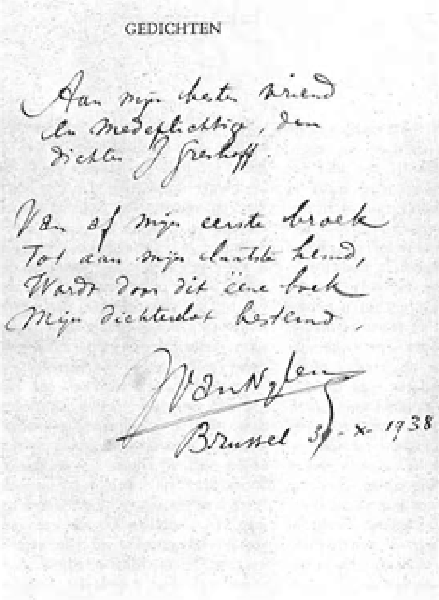 GEDICHTEN
Aan mijn besten vriend
en medeplichtige, den
dichter J Greshoff.
Van af mijn eerste broek
Tot aan mijn laatste hemd,
Wordt door dit ééne boek
Mijn dichterlot bestemd.
J Van Nylen
Brussel -X- 1938